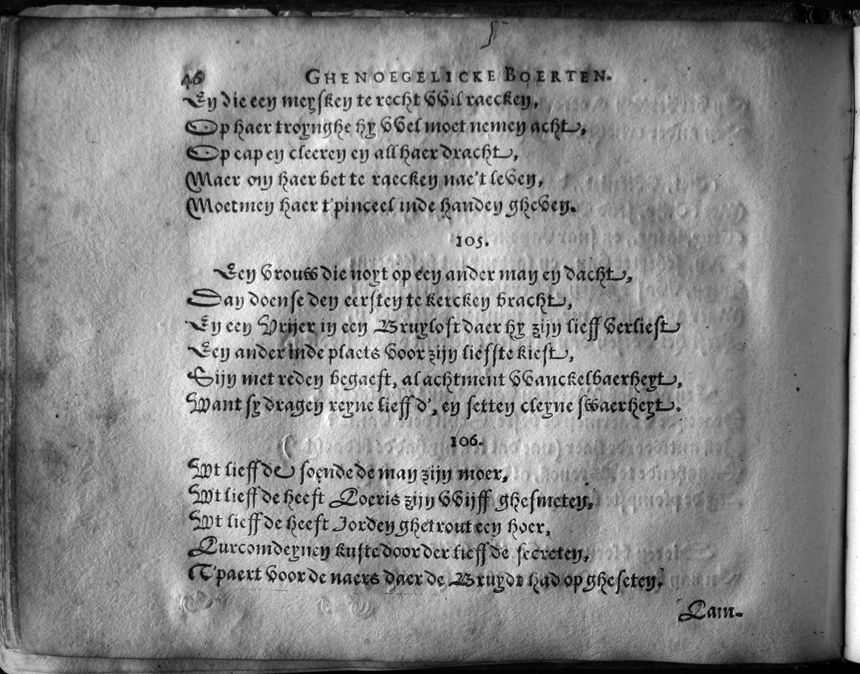 46 GHENOEGELICKE BOERTEN.
En die een meysken te recht wil raecken,
Op haer troynghe hy wel moet nemen acht,
Op cap en cleeren en all haer dracht,
Maer om haer bet te raecken nae't leven,
Moetmen haer t'pinceel inde handen gheven.
105.
Een vrouw die noyt op een ander man en dacht,
Dan doense den eersten te kercken bracht,
En een Vrijer in een Bruyloft daer hy zijn lieff verliest
Een ander inde plaets voor zijn liefste kiest,
Sijn met reden begaeft, al achtment wanckelbaerheyt,
Want sy dragen reyne lieffd', en setten cleyne swaerheyt.
106.
Wt lieffde soende de man zijn moer,
Wt lieffde heeft Loeris zijn wijff ghesmeten,
Wt lieffde heeft Jorden ghetrout een hoer,
kuste door der lieffde secreten,
T'paert voor de naers daer de Bruydt had op gheseten,
Lam-